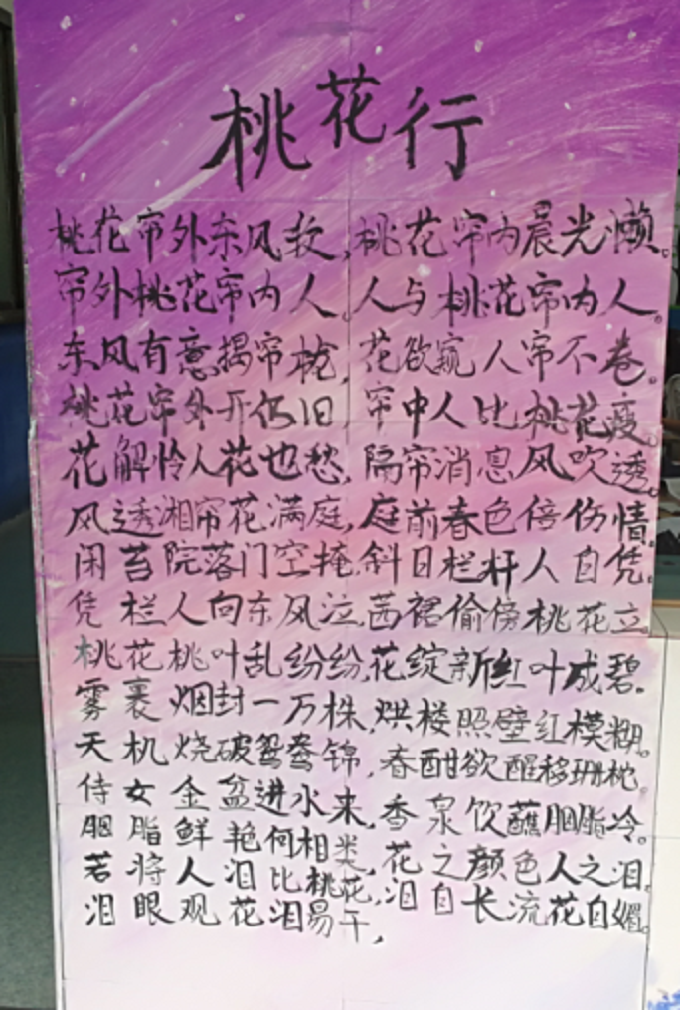 桃花行
桃花帘外东风软,桃花帘内晨光懒。
帘外桃花帘内人。人与桃花帘内人。
东风有意揭帘栊,花欲窥人帘不卷。
桃花帘外开仍旧,帘中人比桃花瘦。
花解怜人花也愁,隔帘消息风吹透。
风透湘帘花满庭,庭前春色倍伤情。
闲苔院落门空掩,斜日栏杆人自凭。
凭栏人向东风泣,茜裙偷傍桃花立。
桃花桃叶乱纷纷,花绽新红叶成碧。
雾裹烟封一万株,烘楼照壁红模糊。
天机烧破鸳鸯锦,春酣欲醒移珊枕。
侍女金盆进水来,香泉饮蘸胭脂冷。
胭脂鲜艳何相类,花之颜色人之泪。
若将人泪比桃花,泪自长流花自媚。
泪眼观花泪易干,